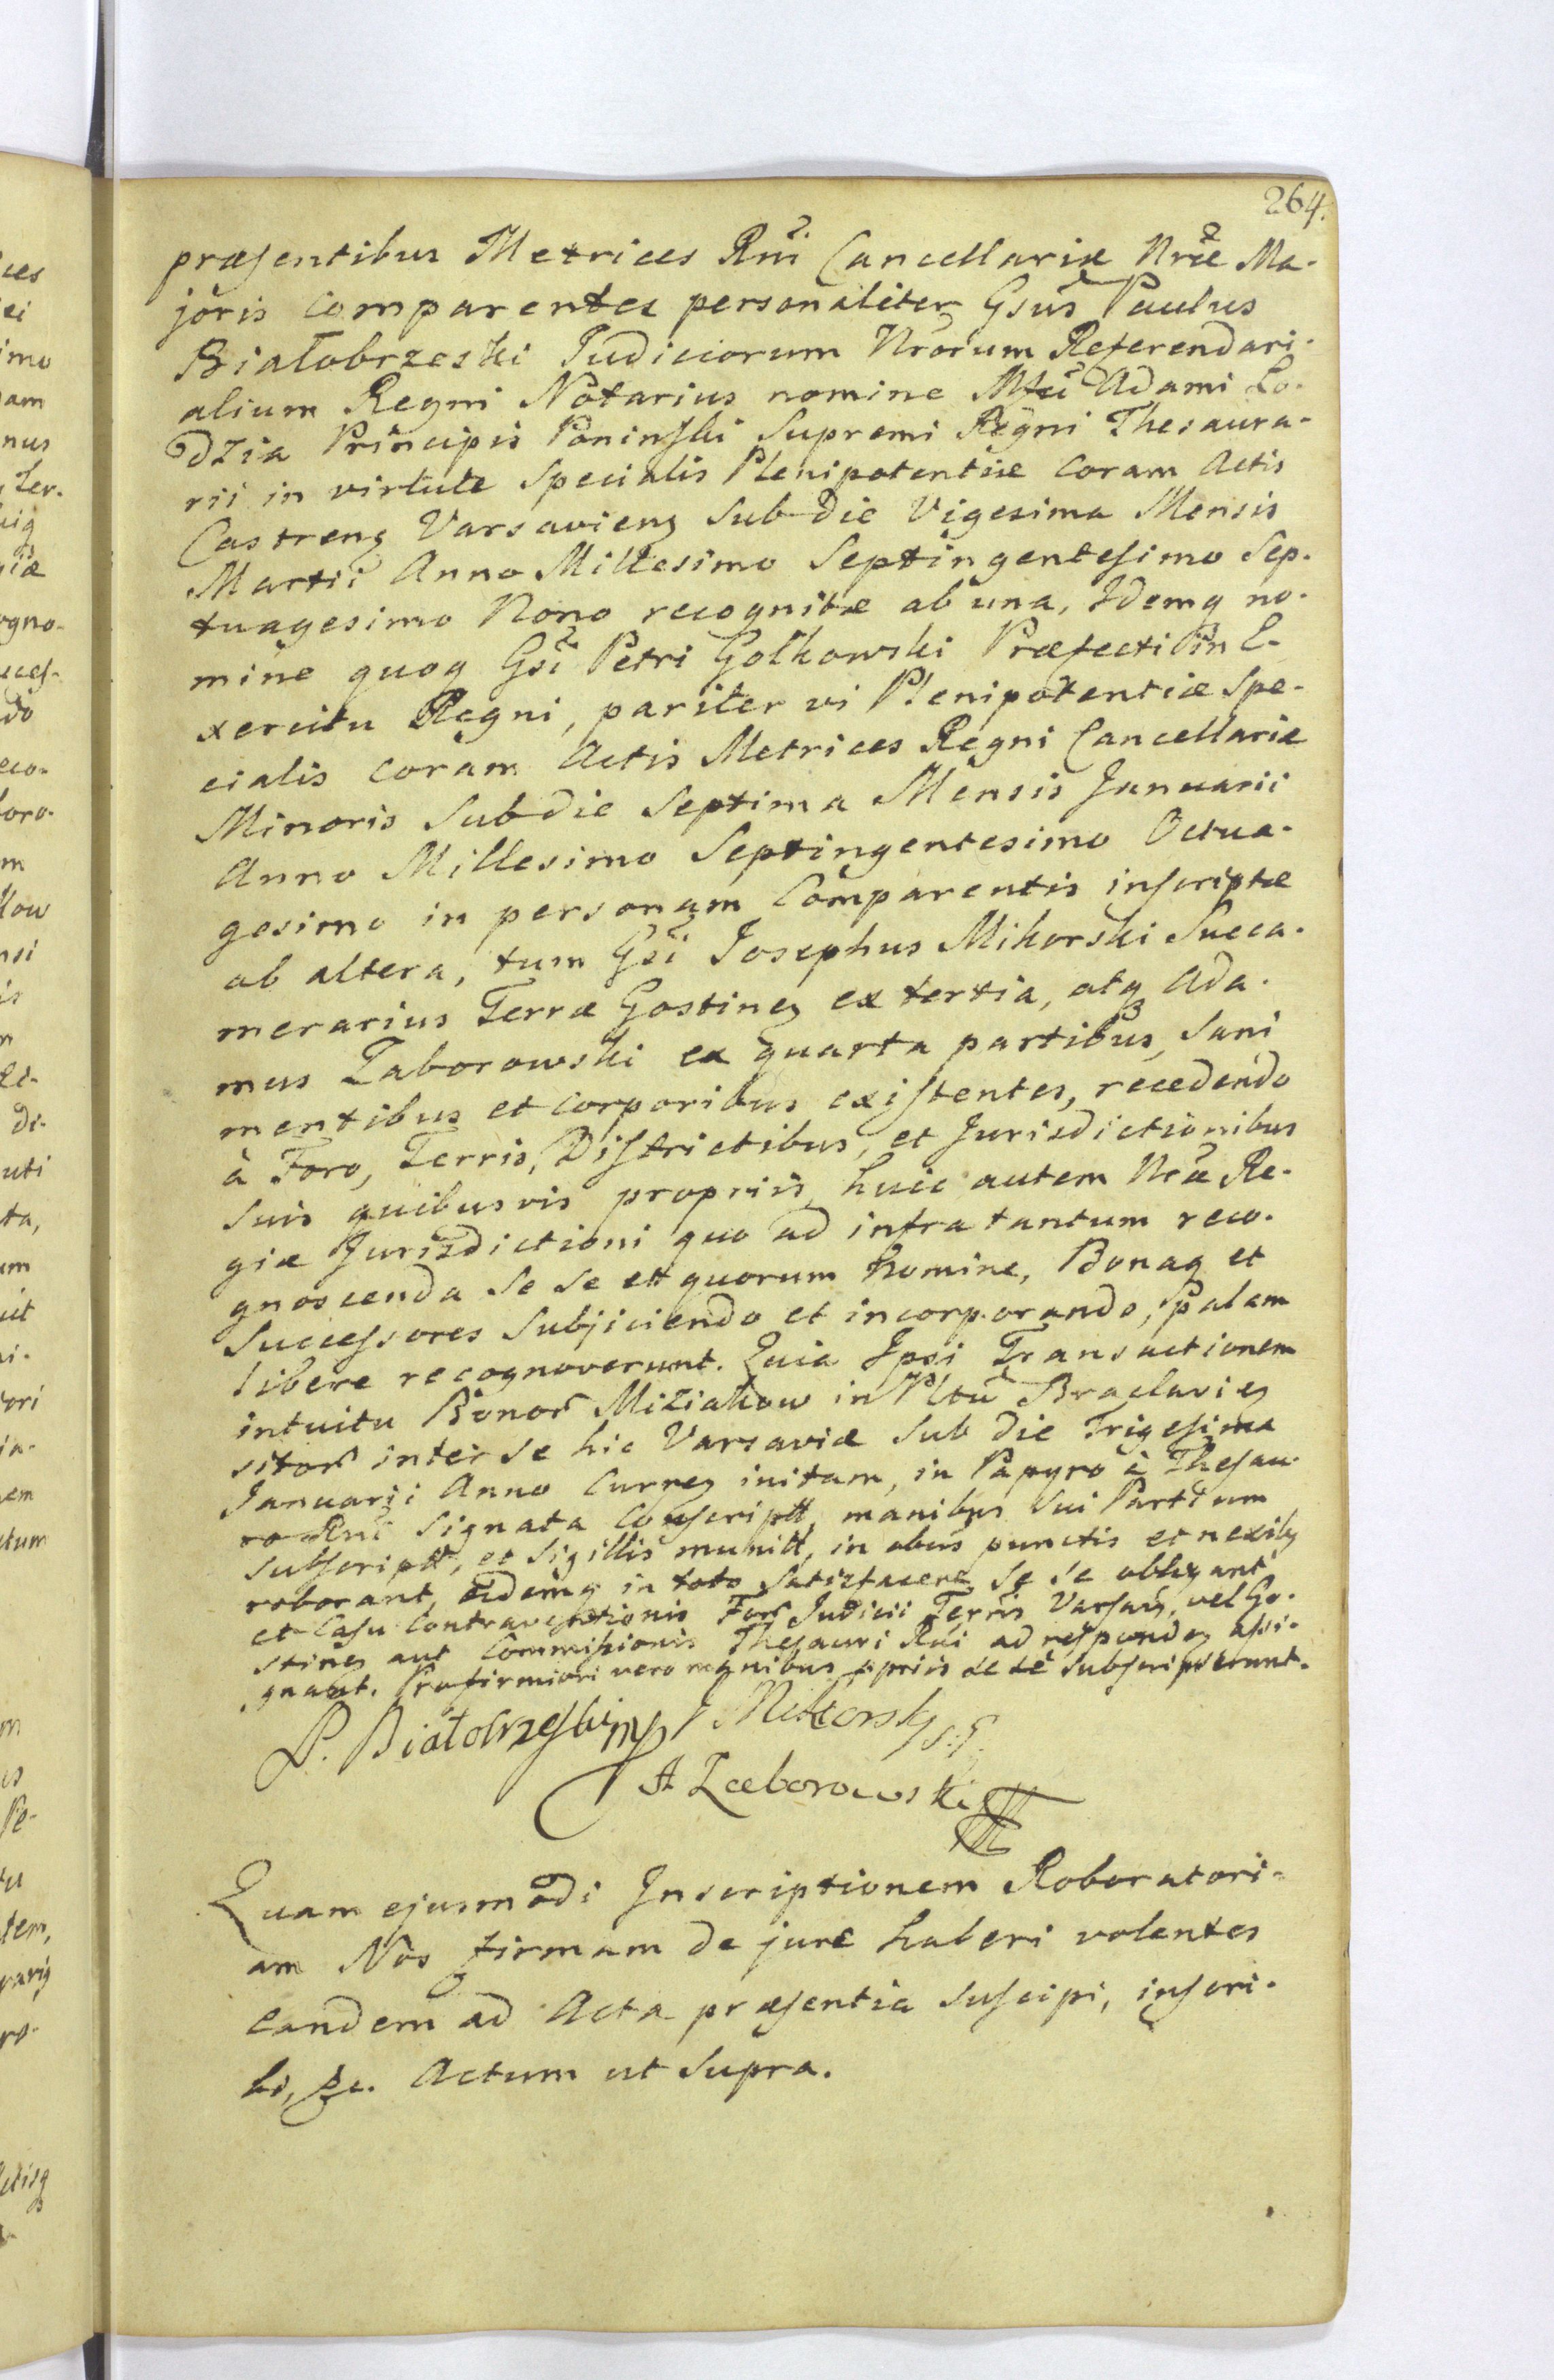 264.
præsentibus Metrices Rñi Cancellariæ Nræ Ma-
joris comparentes personaliter Gsus Paulus
Białobrzeski Judiciorum Nrorum Referendari-
alium Regni Notarius nomine Adami Lo-
dzia Principis Poninski Supremi Regni Thesaura-
rii in virtute specialis Plenipotentiæ coram Actis
Castreng Varsavieng sub die Vigesima Mensis
Martii Anno Millesimo Septingentesimo Sep-
tuagesimo Nono recognitæ ab una, Idemq no-
mine quoq Gsi Petri Golkowski Præfecti in E-
xercitu Regni, pariter vi Plenipotentiæ spe-
cialis coram Actis Metrices Regni Cancellariæ
Minoris sub die Septima Mensis Januarii
Anno Millesimo Septingentesimo Octua-
gesimo in personam Comparentis inscriptæ
ab altera, tum Gsi Josephus Mikorski Succa-
merarius Terræ Gostineg ex tertia, atq Ada-
mus Zaborowski ex quarta partibus, sani
mentibus et corporibus existentes, recedendo
à Foro, Terris, Districtibus, et Jurisdictionibus
suis quibusvis propriis, huic autem Nræ Re-
giæ Jurisdictioni quo ad infra tantum reco-
gnoscenda se se et quorum nomine, Bonaq et
Successores subjiciendo et incorporando, palam
libere recognoverunt. Quia Ipsi Transactionem
intuitu Bonor Miziakow in Pltu Braclavieg
sitor inter se hic Varsaviæ sub die Trigesima
Januarii Anno Curreg initam, in Papyro à Thesau-
ro Rni signata conscriptt, manibus sui Partium
subscriptt, et sigillis munitt, in obus punctis et nexibg
roborant, eidemq in toto satisfacere se se obligant,
et Casu Contraventionis Fori Judicii Terris Varsaug, vel Go-
stineg aut Commissionis Thesauri Rni ad respondeg assi-
gnant. Pro firmiori vero manibus ppriis se se subscripserunt.
P. Białobrzeski J Mikorski
A Zaborowski
Quam ejusmodi Inscriptionem Roboratori-
am Nos firmam de jure haberi volentes
eandem ad Acta præsentia suscipi, inscri-
bi, &c. Actum ut supra.